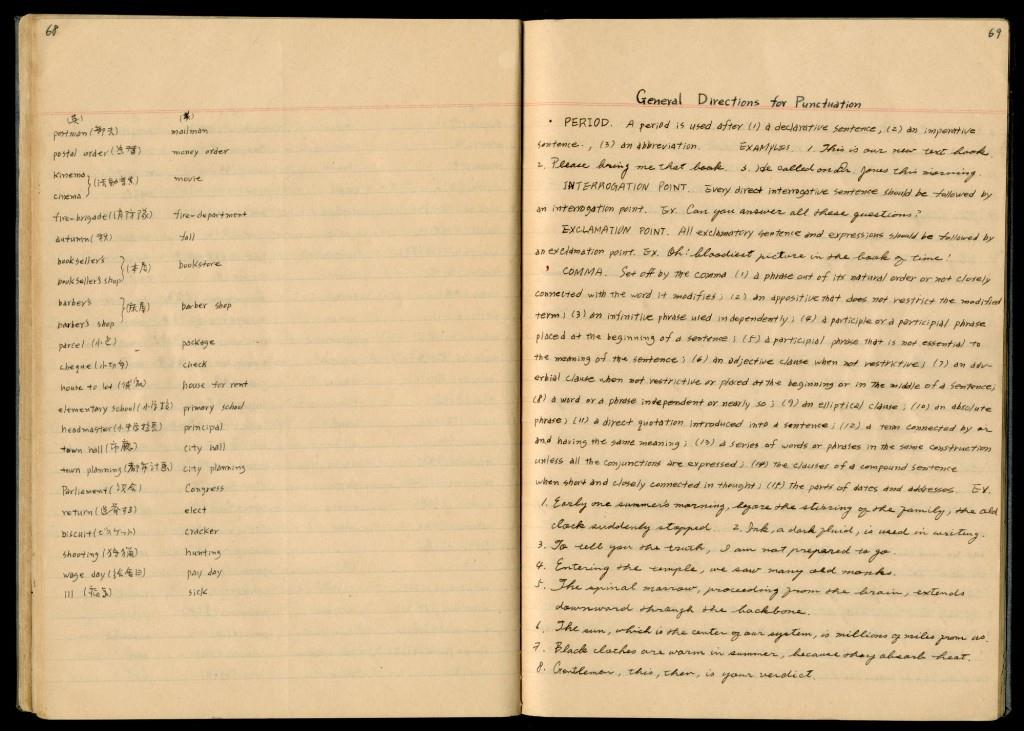 68
(英) (米)
postman (郵夫) mailman
postal order (為替) money order
Kinema
(活動写真) movie
cinema
fire-brigade (消防隊) fire-department
autumn (秋) fall
bookseller's
(本屋) bookstore
bookseller's shop
barber's
barber shop
barber's shop
parcel (小包) package
cheque (小切手) check
house to let house for rent
elementary school (小学校) primary school
headmaster (小学校長) principal
town hall (市廳) city hall
town planning (都市計画) city planning
Parliament (议会) Congress
return elect
biscuit (ビスケット) cracker
shooting hunting
wage day (給金日) pay day
ill sick
69
General Directions for Punctuation
• PERIOD. A period is used after (1) a declarative sentence, (2) an imperative
sentence., (3) an abbreviation. EXAMPLES. 1. This is our new text book.
2. Please bring me that book. 3. He called on Dr. Jones this morning.
INTERROGATION POINT. Every direct interrogative sentence should be followed by
an interrogation point. Ex. Can you answer all these questions?
EXCLAMATION POINT. All exclamatory sentence and expressions should be followed by
an exclamation point. Ex. Oh! bloodiest picture in the book of time!
, COMMA. Set off by the comma (1) a phrase out of its natural order or not closely
connected with the word it modifies; (2) an appositive that does not restrict the modified
term; (3) an infinitive phrase used independently; (4) a participle or a participial phrase
placed at the beginning of a sentence; (5) a participial phrase that is not essential to
the meaning of the sentence; (6) an adjective clause when not restrictive; (7) an adv-
erbial clause when not restrictive or placed at the beginning or in the middle of a sentence;
(8) a word or a phrase independent or nearly so; (9) an elliptical clause; (10) an absolute
phrase; (11) a direct quotation introduced into a sentence; (12) a term connected by or
and having the same meaning; (13) a series of words or phrases in the same construction
unless all the conjunctions are expressed; (14) the clauses of a compound sentence
when short and closely connected in thought; (15) the parts of dates and addresses. EX.
1. Early one summer's morning, before the stirring of the family, the old
clock suddenly stopped. 2. Ink, a dark fluid, is used in writing.
3. To tell you the truth, I am not prepared to go.
4. Entering the temple, we saw many old monks.
5. The spinal marrow, proceeding from the brain, extends
downward through the backbone.
6. The sun, which is the center of our system, is millions of miles from us.
7. Black clothes are warm in summer, because they absorb heat.
8. Gentlemen, this, then, is your verdict.